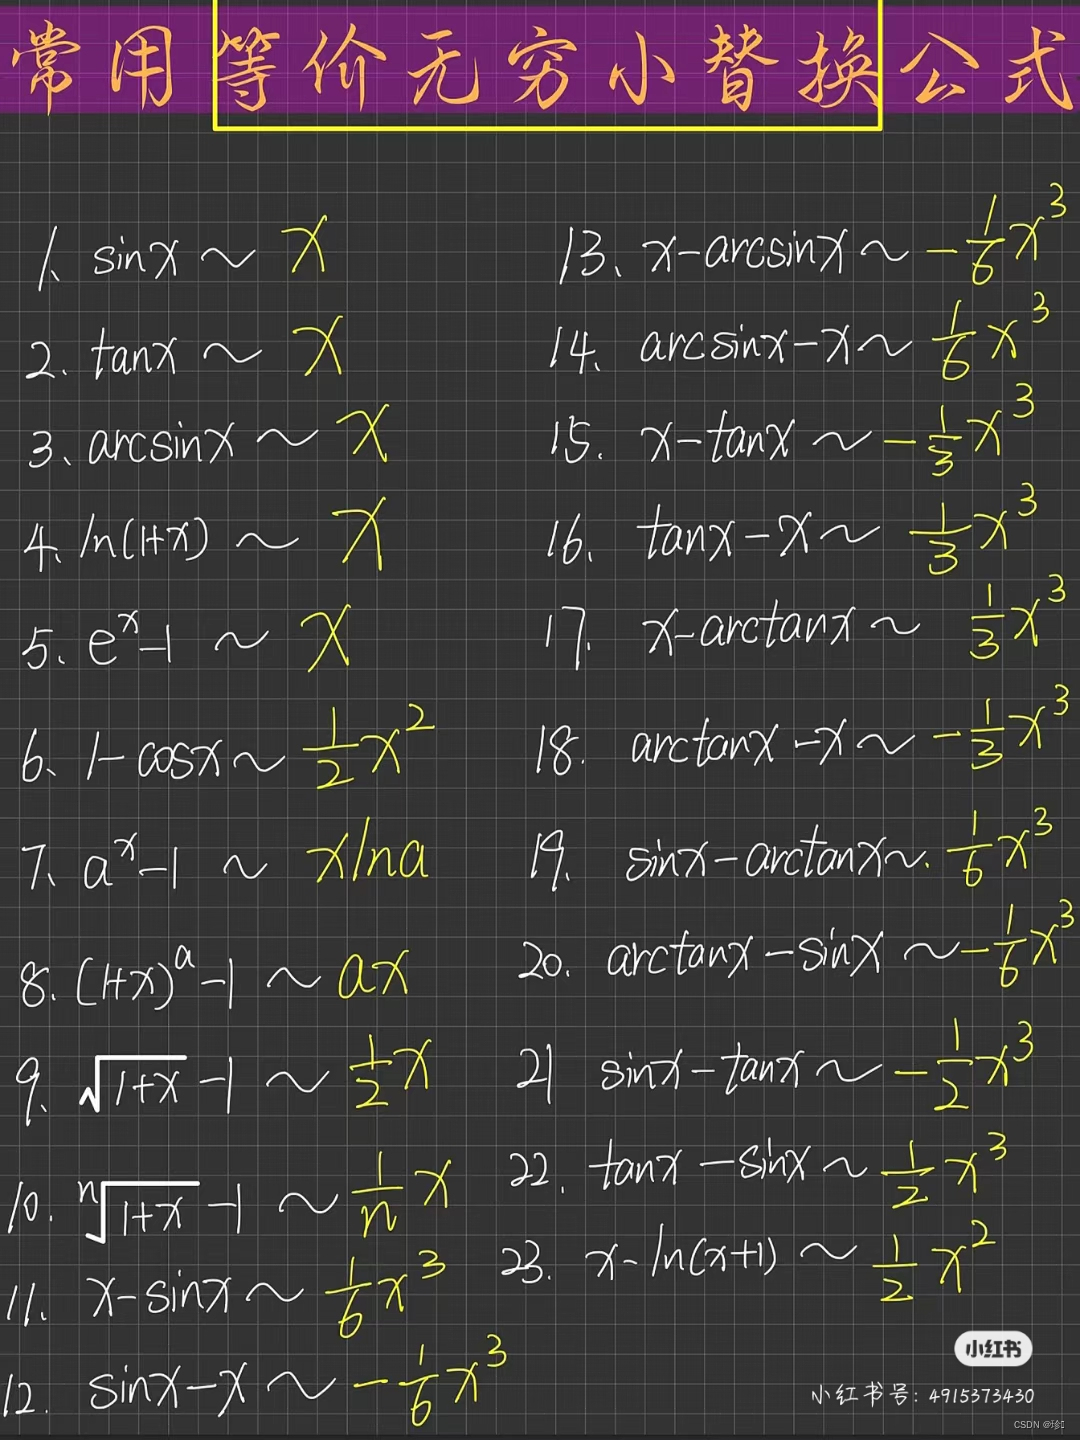 常用等价无穷小替换公式
1、sinx ~ x
2、tanx ~ x
3、arcsinx ~ x
4、ln(1+x) ~ x
5、e^x-1 ~ x
6、1-cosx ~ 1/2 x^2
7、a^x-1 ~ xlna
8. (1+x)^a-1 ~ ax
9、√(1+x) -1 ~ 1/2 x
10. ⁿ√(1+x) -1 ~ 1/n x
11. x-sinx ~ 1/6 x^3
12. sinx-x ~ -1/6 x^3
13、x-arcsinx ~ -1/6 x^3
14、arcsinx-x ~ 1/6 x^3
15. x-tanx ~ -1/3 x^3
16、tanx-x ~ 1/3 x^3
17. x-arctanx ~ 1/3 x^3
18. arctanx-x ~ -1/3 x^3
19. sinx-arctanx ~. 1/6 x^3
20. arctanx-sinx ~ -1/6 x^3
21 sinx-tanx ~ -1/2 x^3
22. tanx-sinx ~ 1/2 x^3
23. x-ln(x+1) ~ 1/2 x^2
小红书
小红书号: 4915373430
CSDN @珍